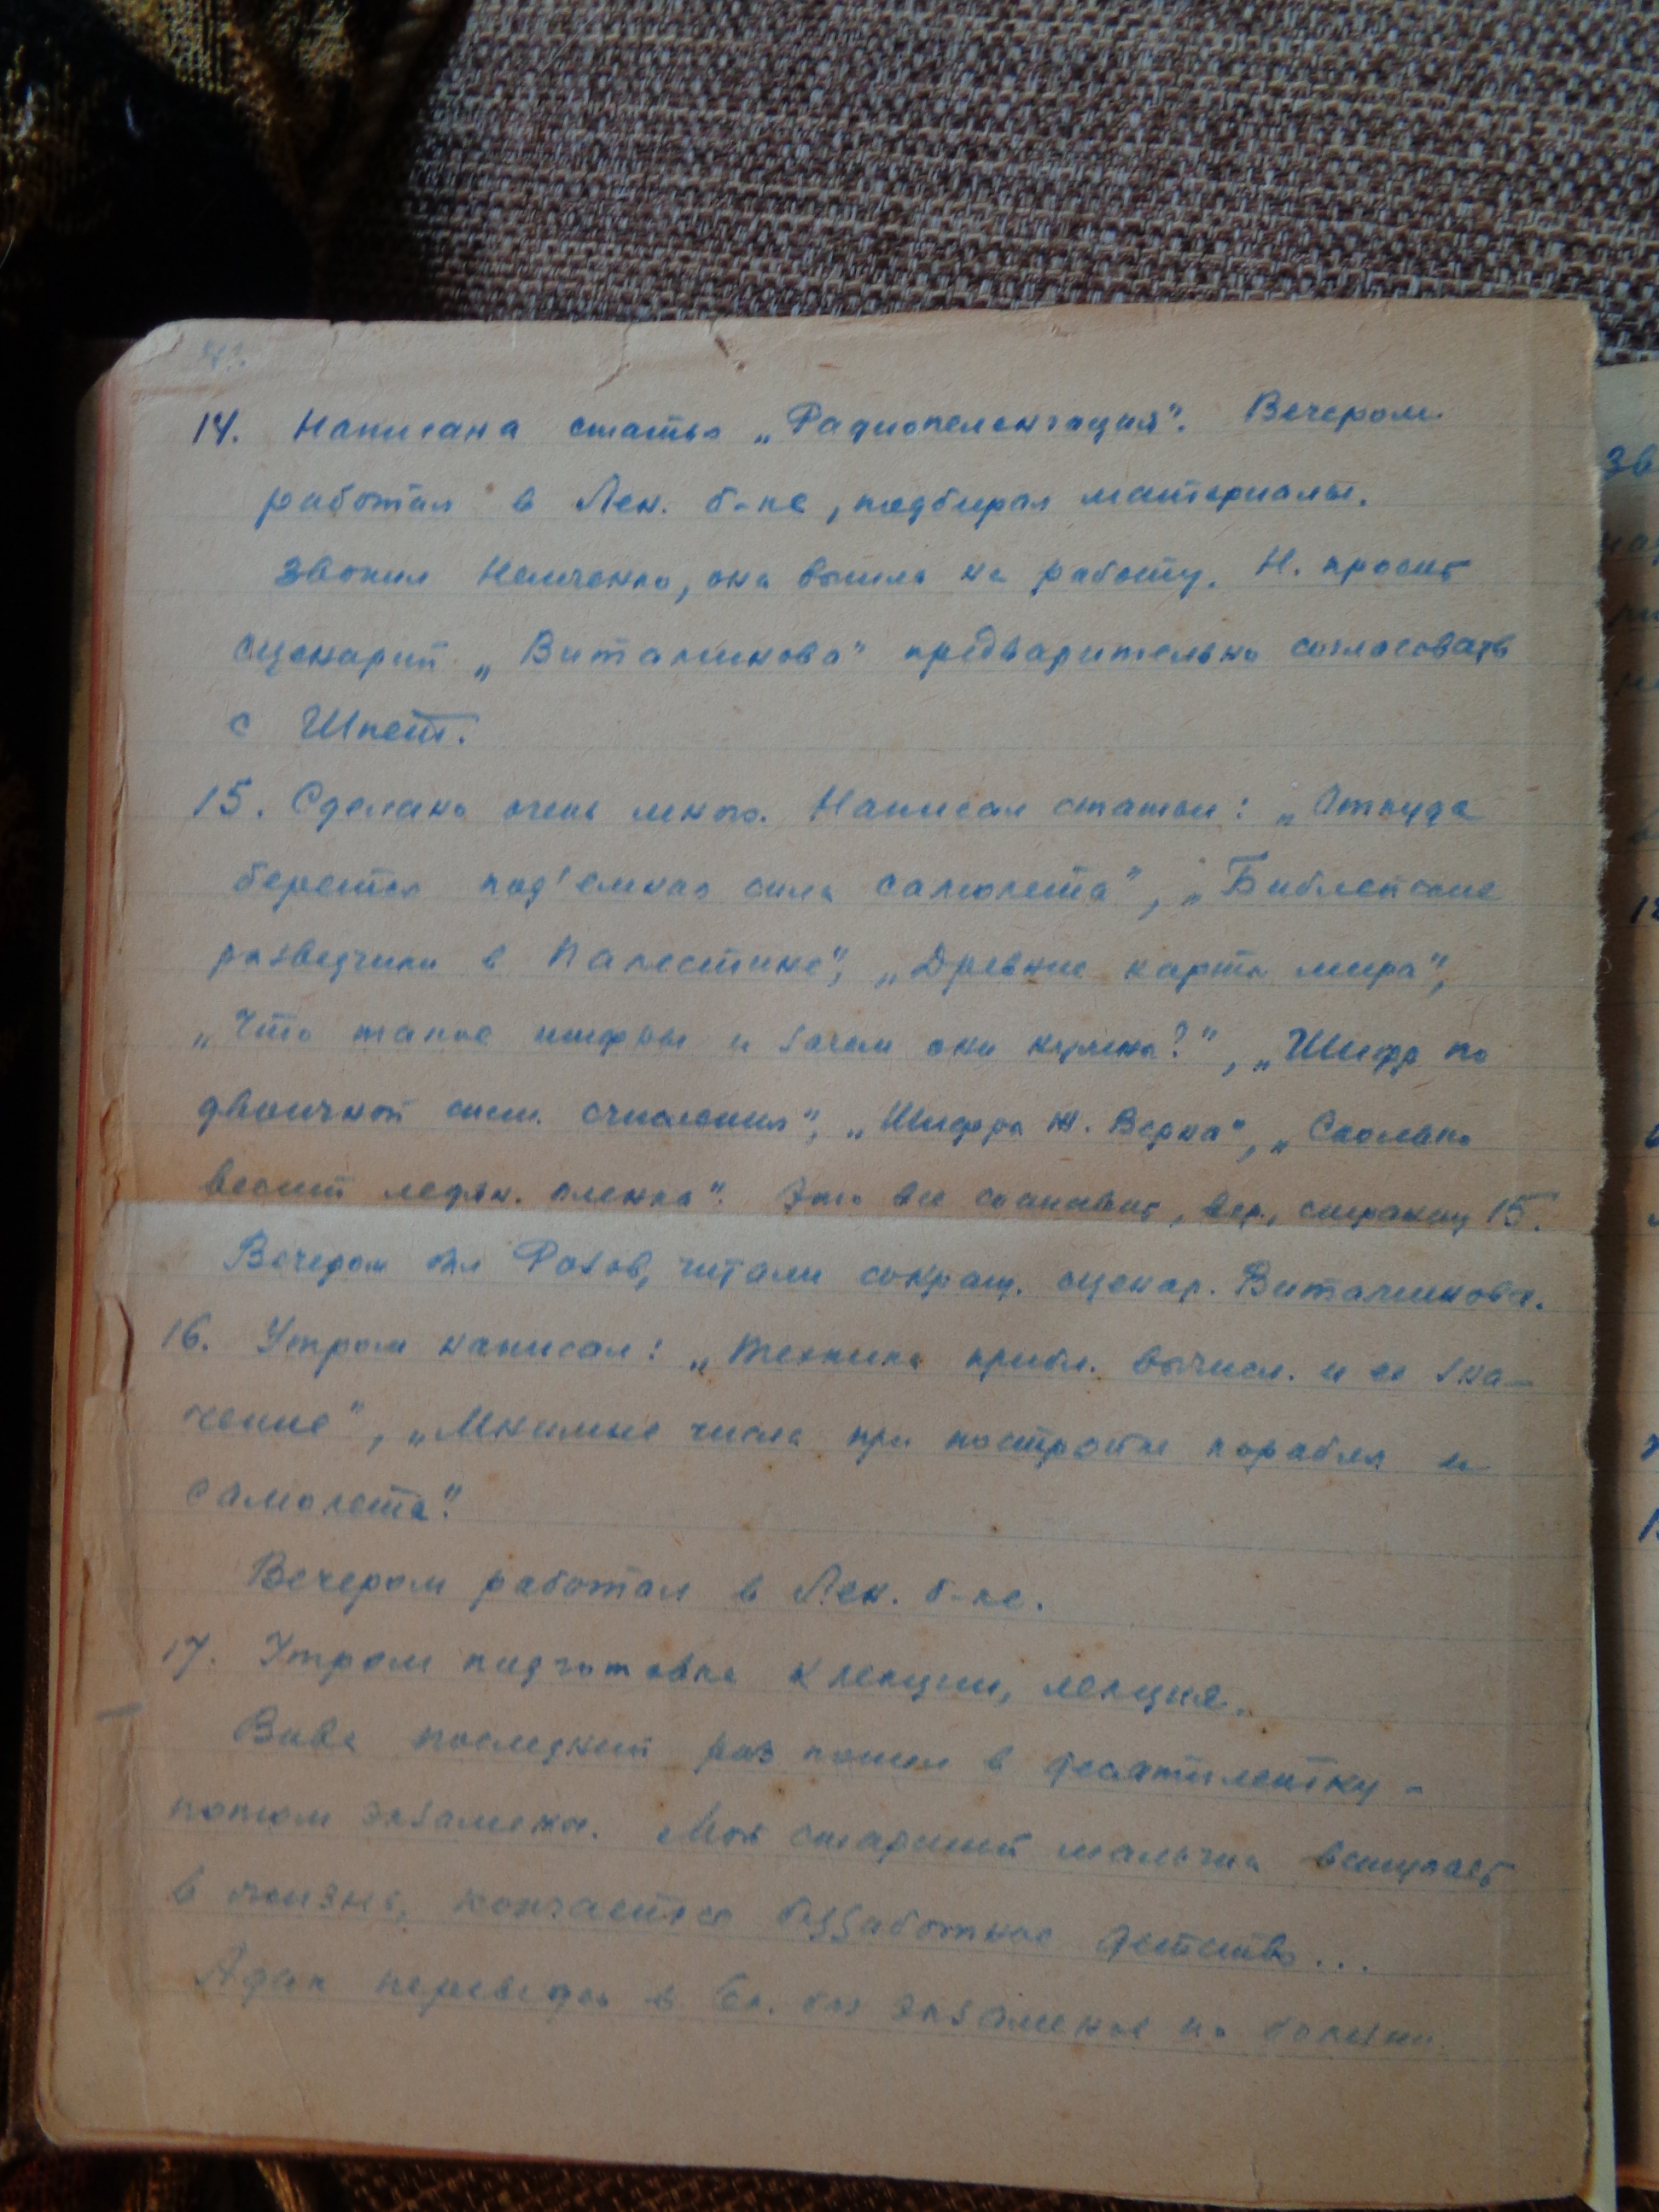 14. Написана статья „Радиопеленгация“. Вечером
работал в Лен. б-ке, подбирал материалы.
Звонил Немченко, она вышла на работу. Н. просит
сценарий „Виталинкова“ предварительно согласовать
с Шпет.
15. Сделано очень много. Написал статьи: „Откуда
берется под'емная сила самолета“, „Библейские
разведчики в Палестине“, „Древние карты мира“,
„Что такое шифры и зачем они нужны?“, „Шифр по
двоичной сист. счисления“, „Шифры Ж. Верна“, „Сколько
весит ледян. пленка“. Это все составит, вер., страниц 15.
Вечером был Розов, читали сокращ. сценар. Виталинкова.
16. Утром написал: „Техника прибл. вычисл. и ее зна-
чение“, „Мнимые числа при постройке корабля и
самолета“.
Вечером работал в Лен. б-ке.
17. Утром подготовка к лекции, лекция.
Вива последний раз пошел в десятилетку -
потом экзамены. Мой старший мальчик вступает
в жизнь, кончается беззаботное детство...
Адик переведен в 6 кл. без экзаменов по болезни.